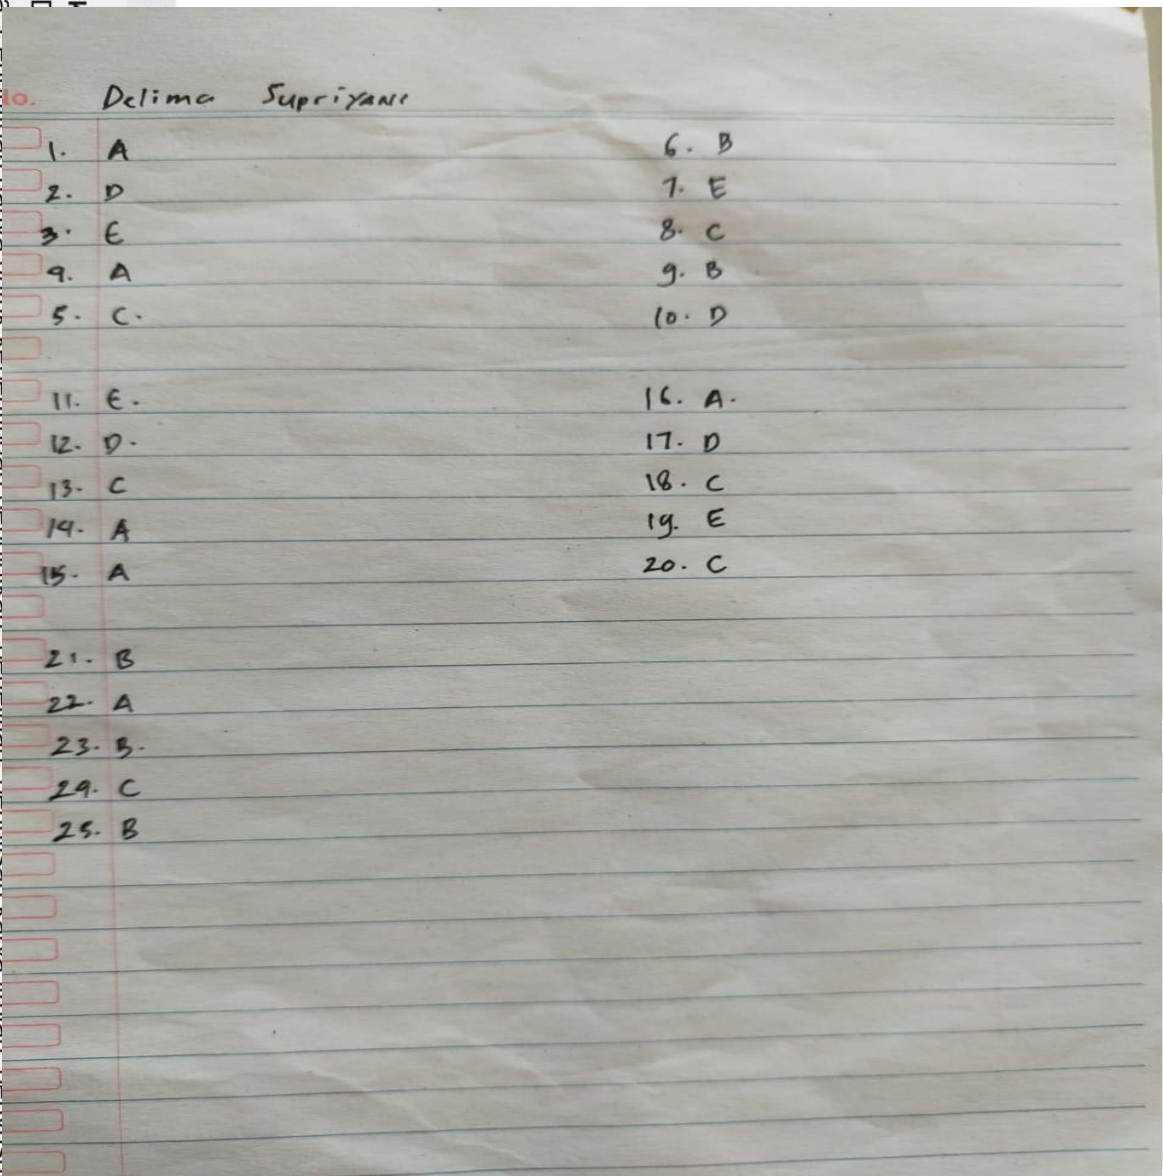 No.
Delima Supriyani
1. A
2. D
3. E
4. A
5. C.
6. B
7. E
8. C
9. B
10. D
11. E.
12. D.
13. C
14. A
15. A
16. A.
17. D
18. C
19. E
20. C
21. B
22. A
23. B.
24. C
25. B